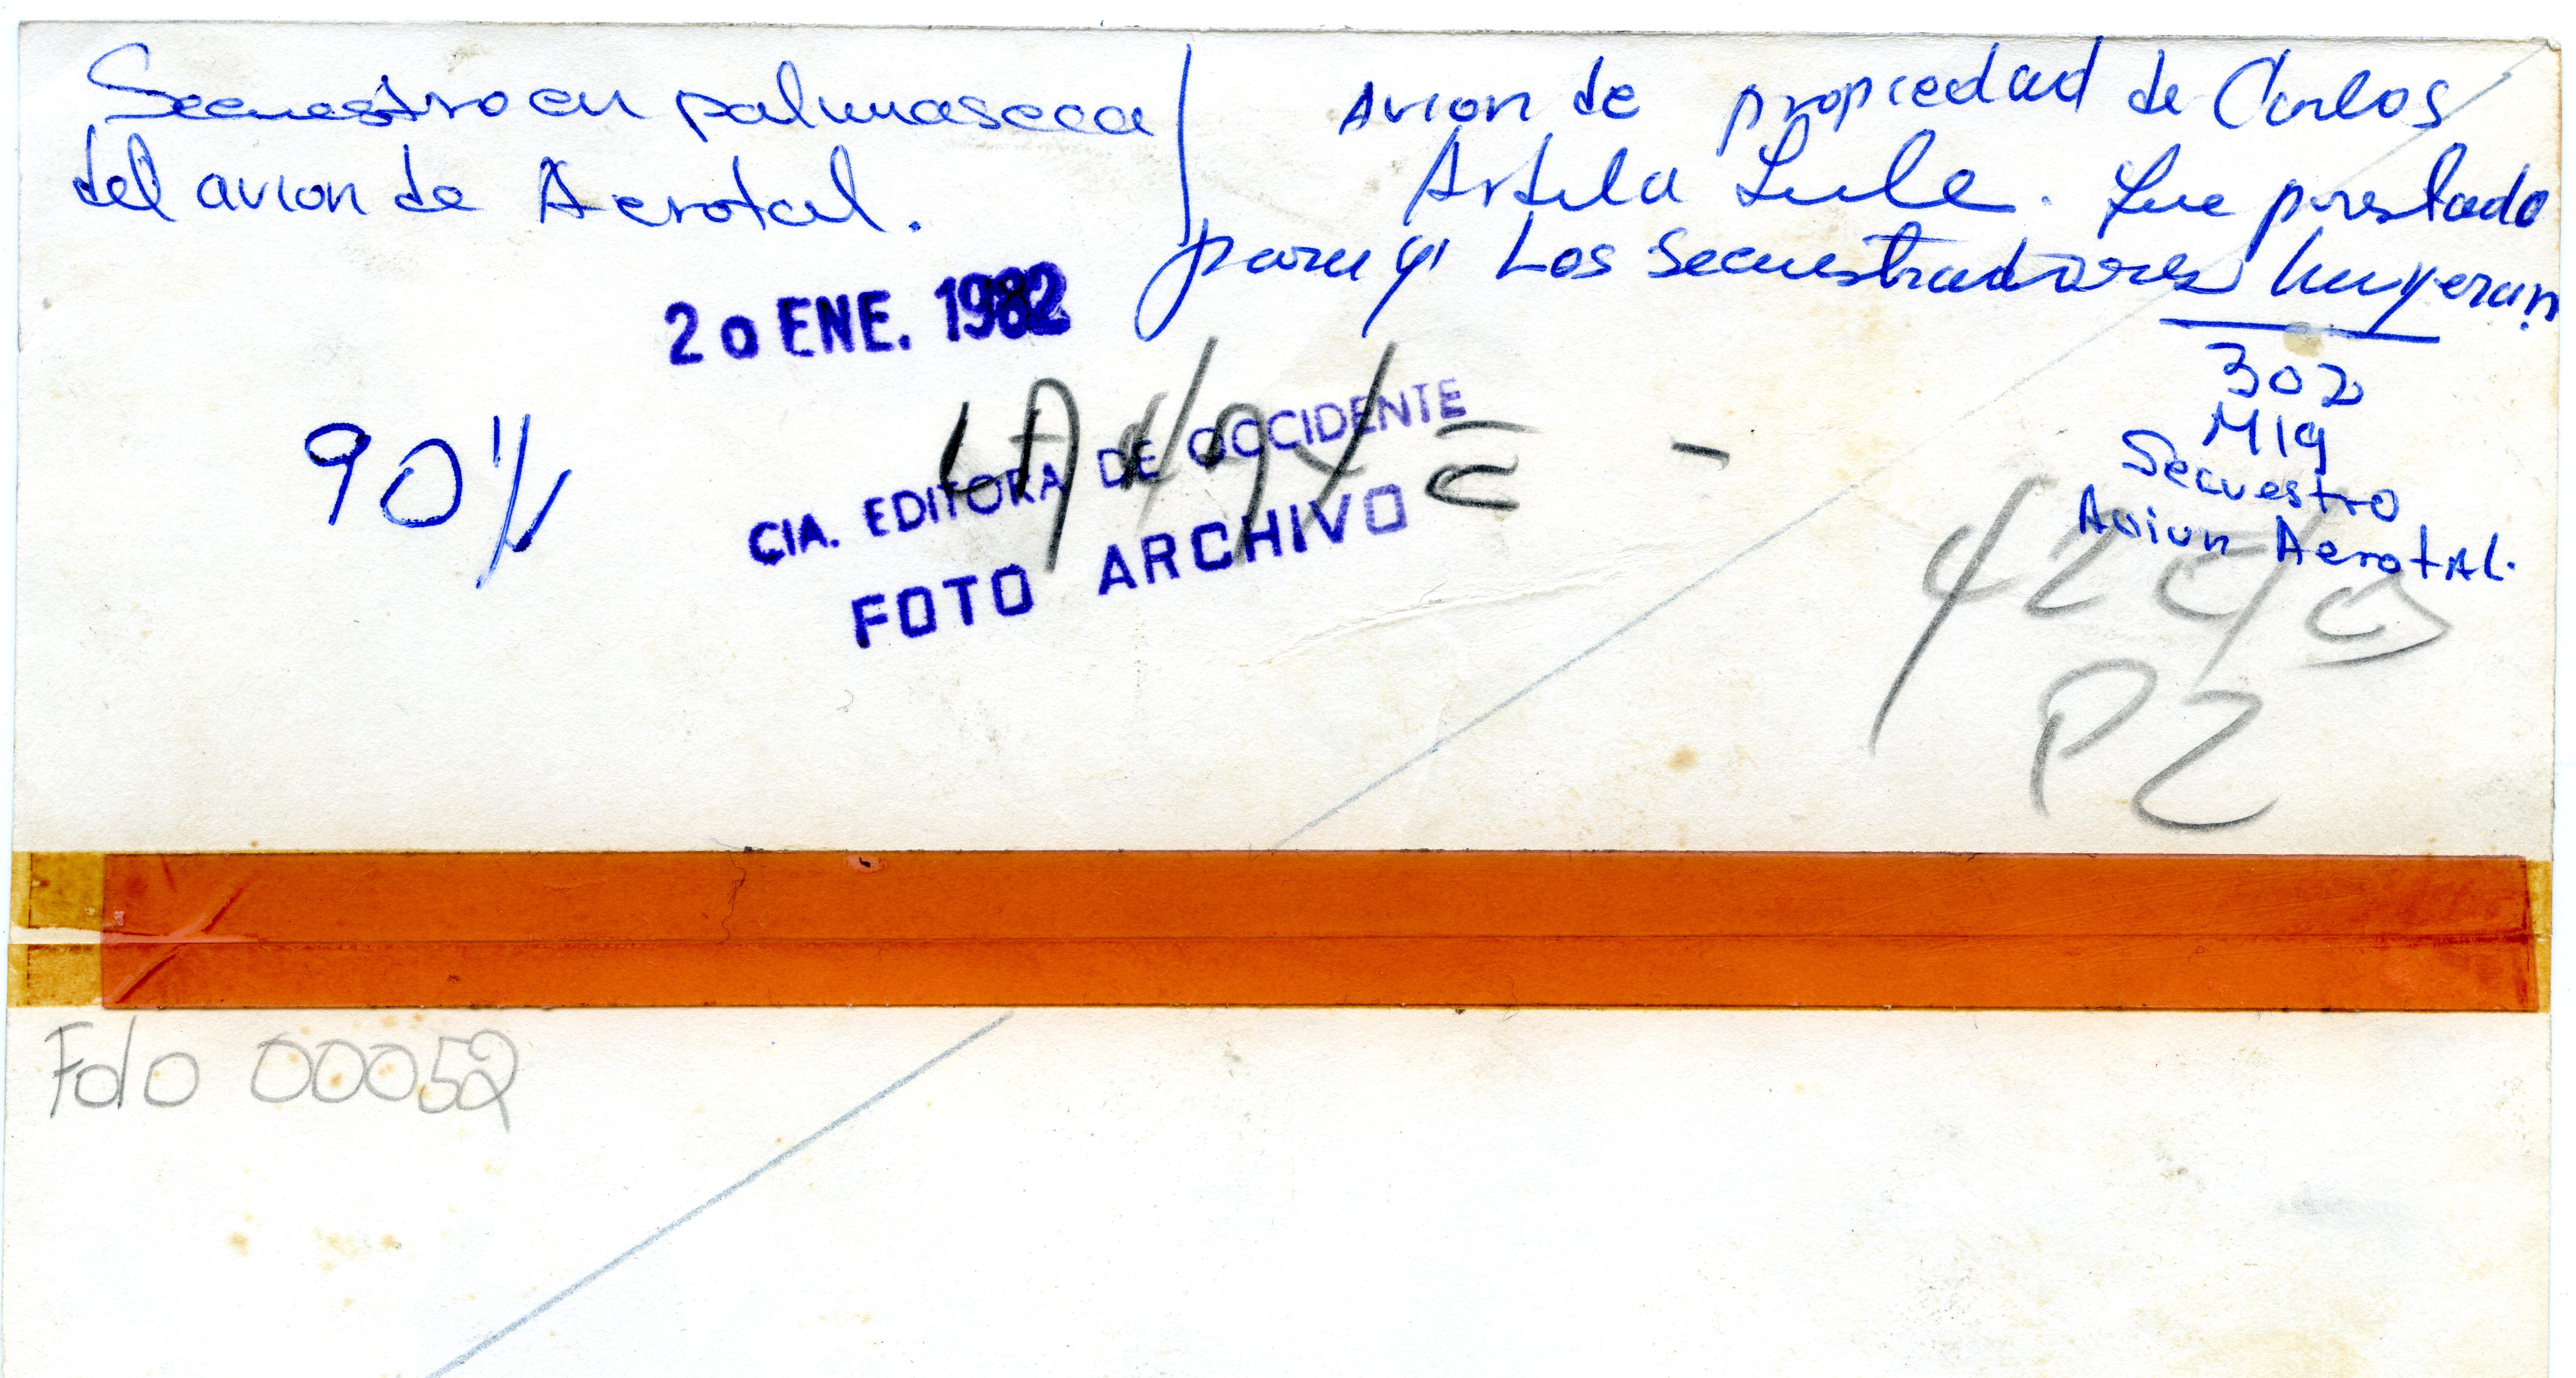 Secuestro en palmaseca
del avion de Aerotal.
Avion de propiedad de Carlos
Artila Lule. Fue prestado
para q' Los secuestradores huyeran
20 ENE. 1982
90%
CIA. EDITORA DE OCCIDENTE
FOTO ARCHIVO
302
M19
Secuestro
Avion Aerotal.
P2
Fdo 00052